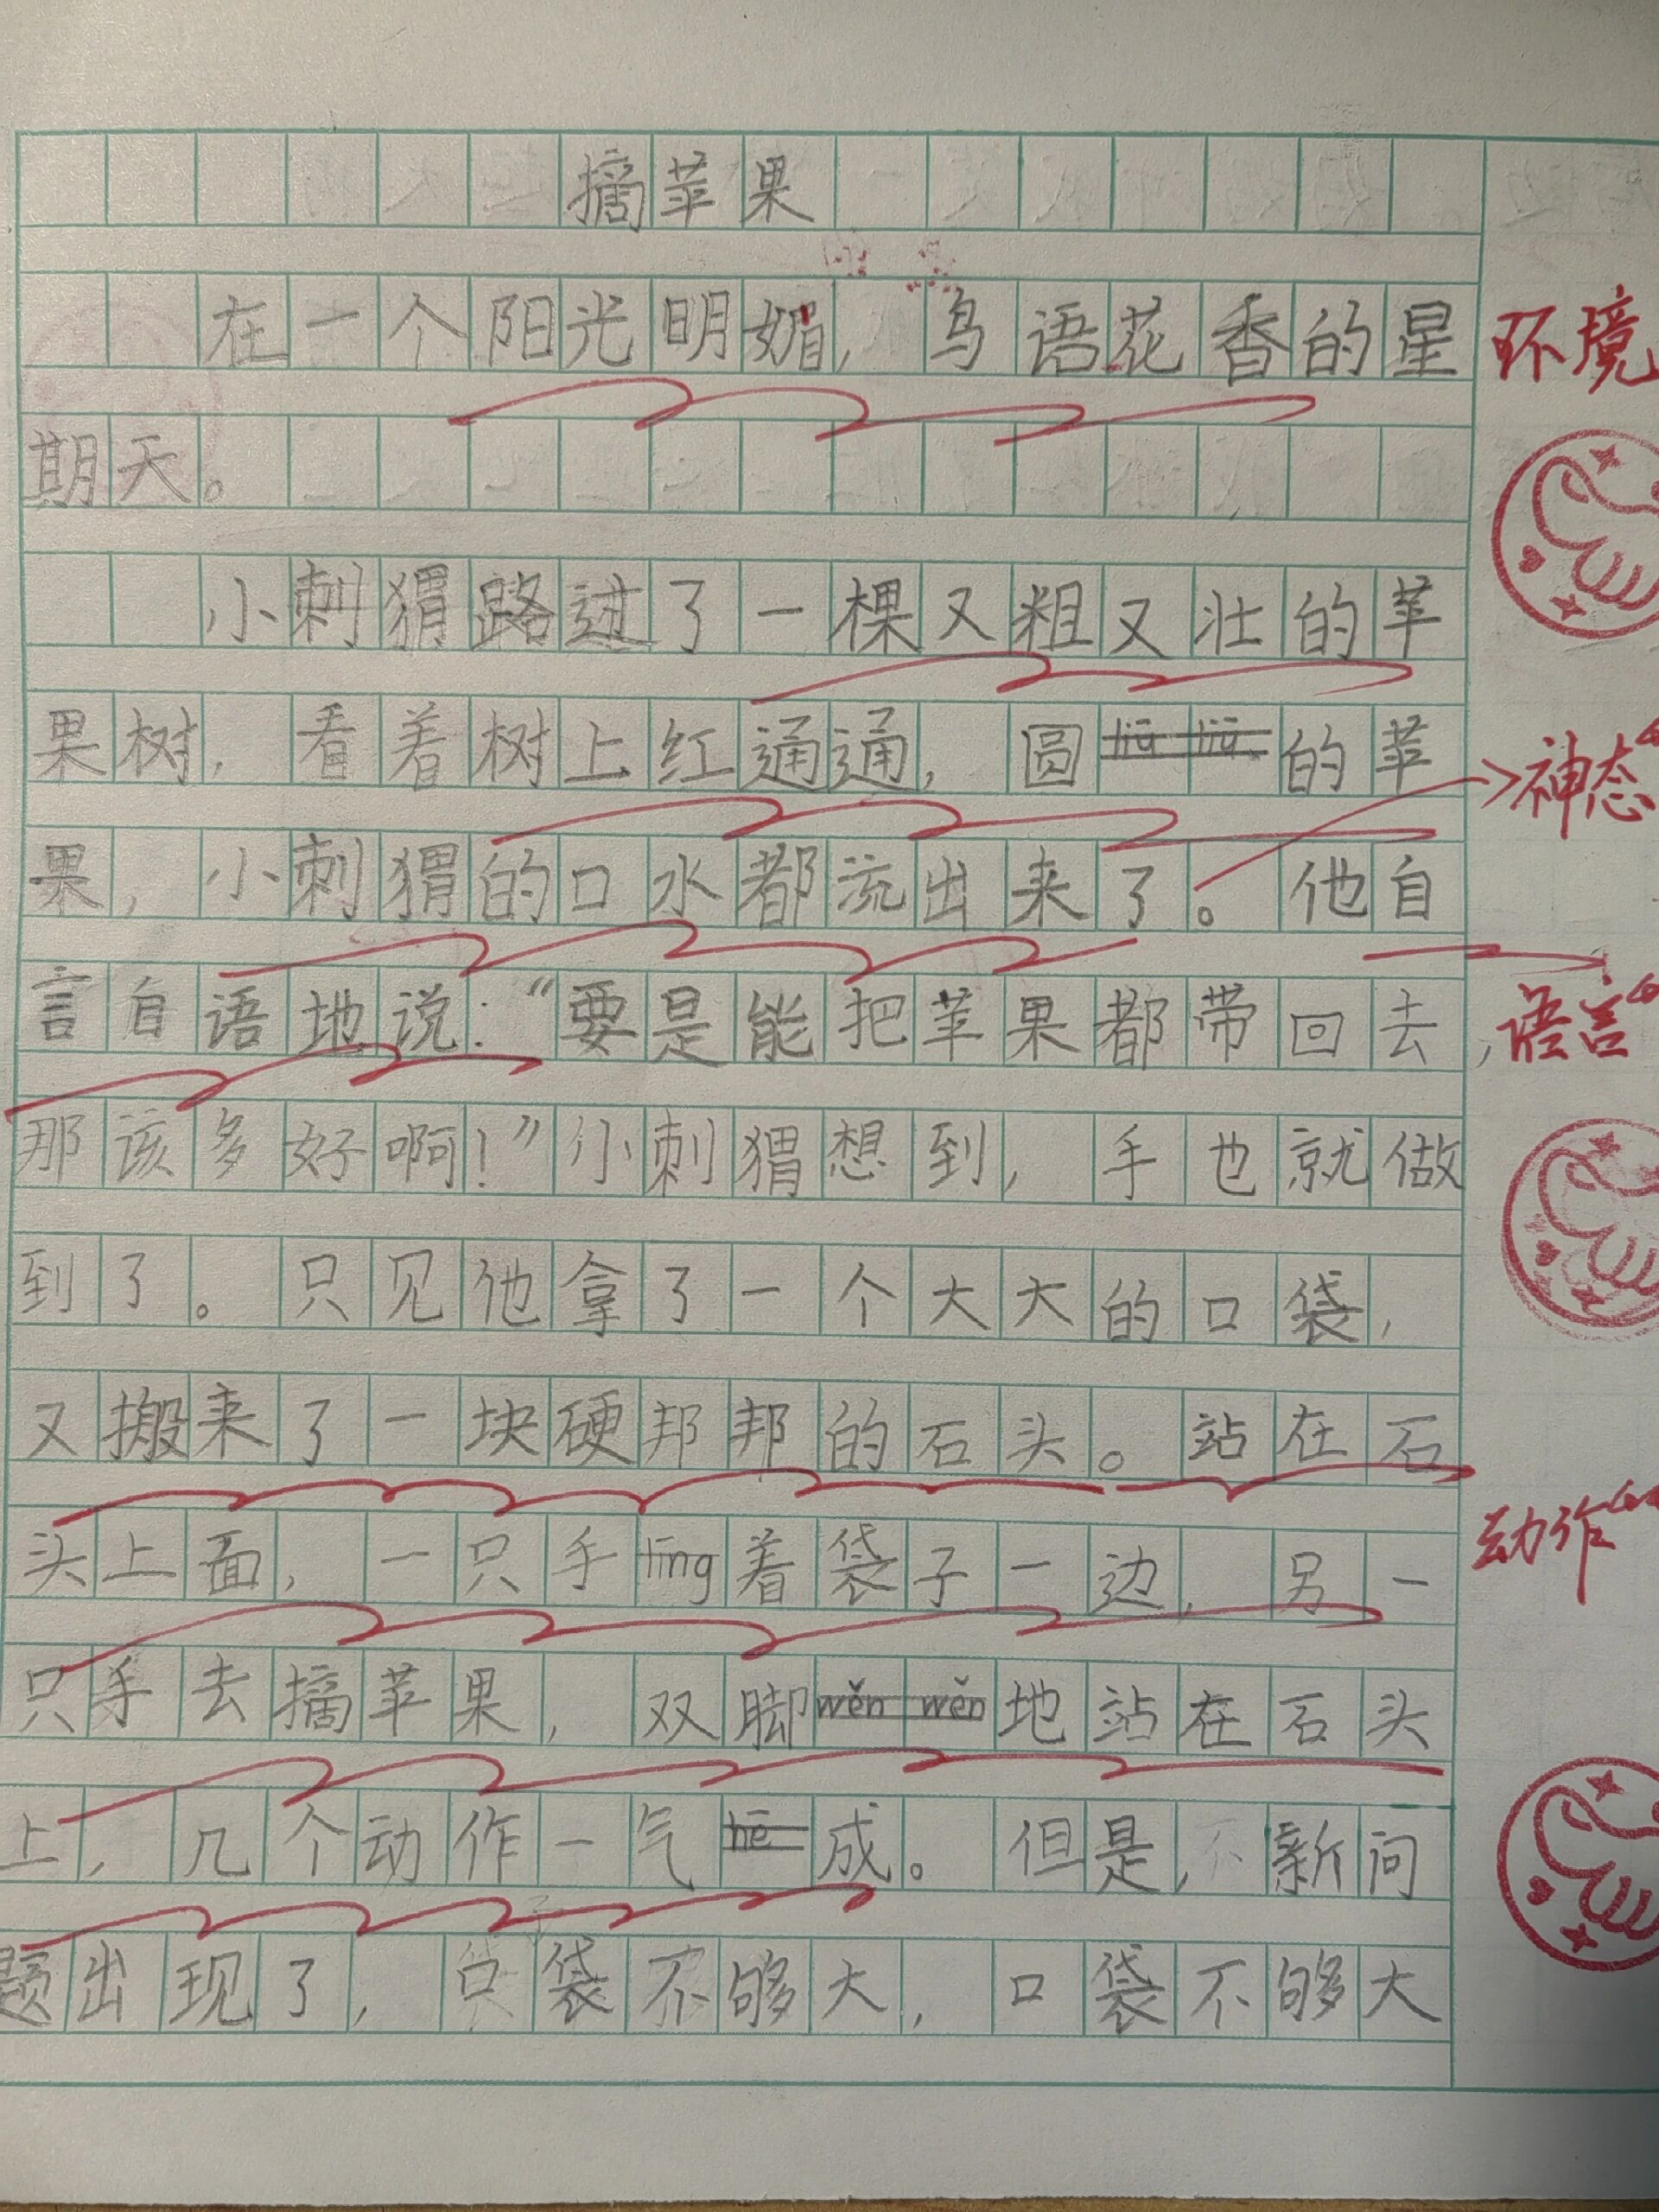 摘苹果
在一个阳光明媚，鸟语花香的星
环境
期天。
小刺猬路过了一棵又粗又壮的苹
果树，看着树上红通通，圆liū liū的苹
神态
果，小刺猬的口水都流出来了。他自
言自语地说：“要是能把苹果都带回去，
语言
那该多好啊！”小刺猬想到，手也就做
到了。只见他拿了一个大大的口袋，
又搬来了一块硬邦邦的石头。站在石
头上面，一只手līng着袋子一边，另一
动作
只手去摘苹果，双脚wěn wěn地站在石头
上，几个动作一气hē成。但是，新问
题出现了，口袋不够大，口袋不够大